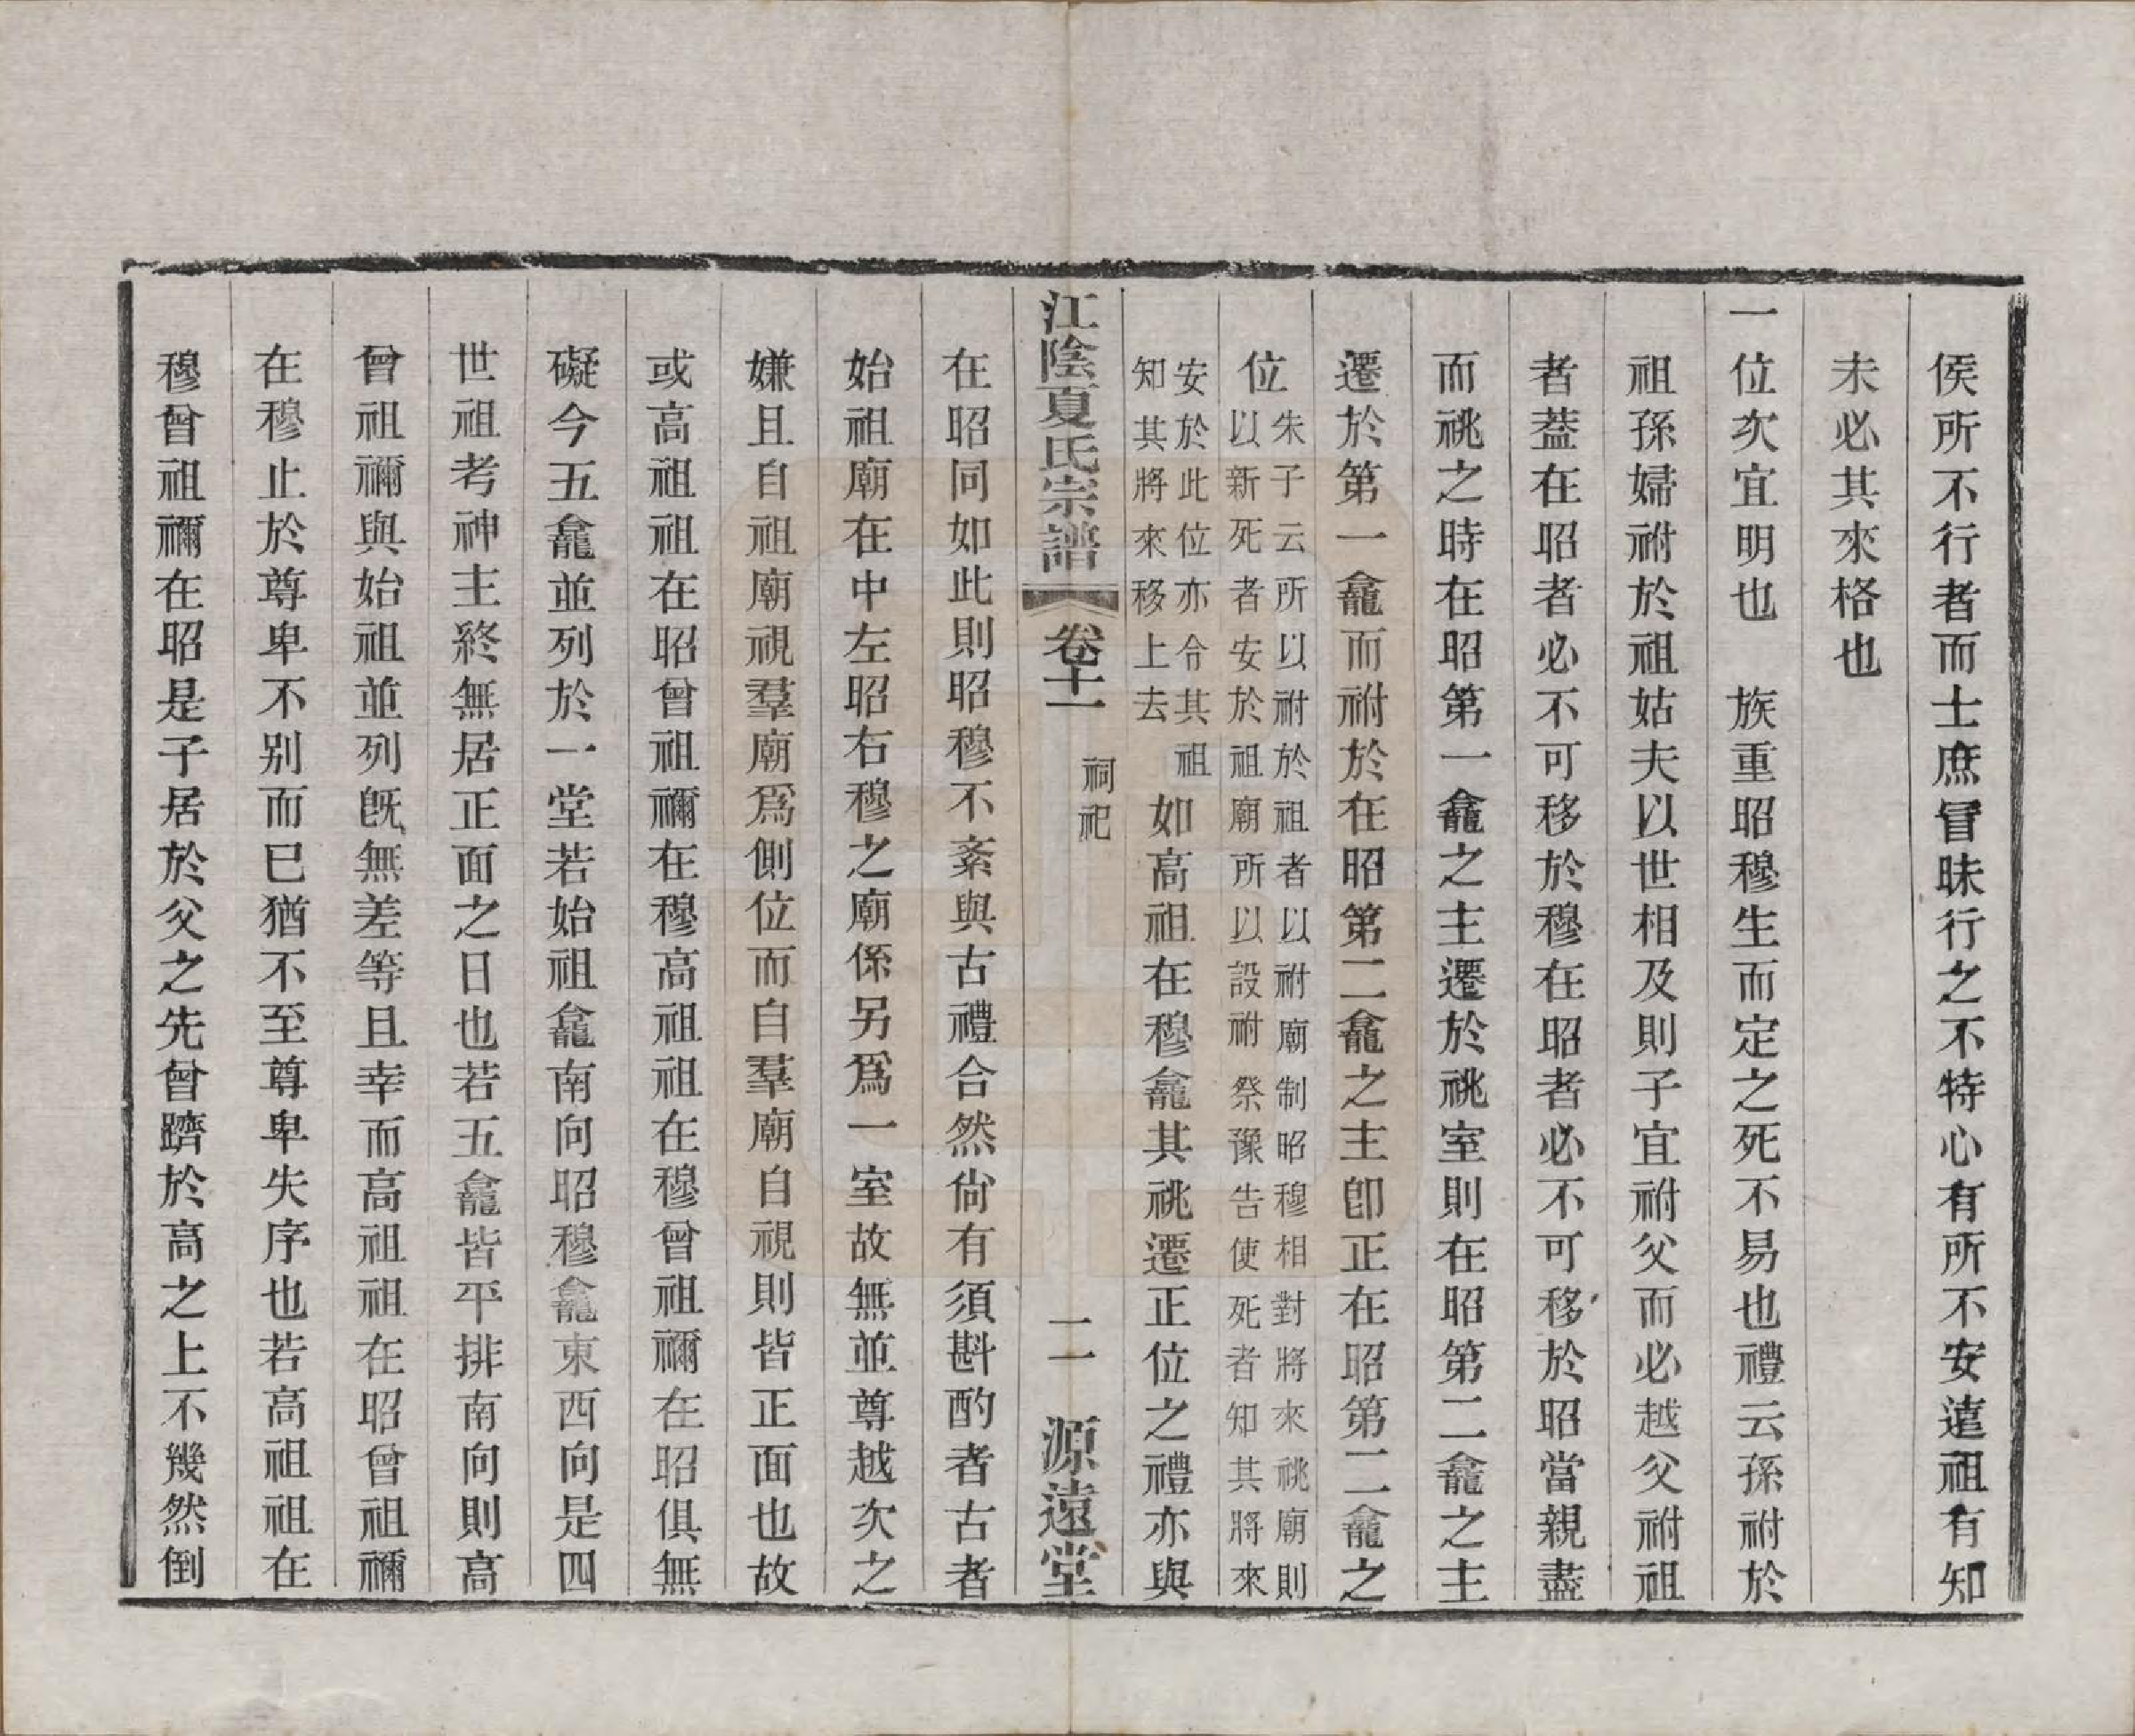 侯所不行者而士庶冒昧行之不特心有所不安遠祖有知
未必其來格也
一位次宜明也　族重昭穆生而定之死不易也禮云孫祔於
祖孫婦祔於祖姑夫以世相及則子宜祔父而必越父祔祖
者葢在昭者必不可移於穆在昭者必不可移於昭當親盡
而祧之時在昭第一龕之主遷於祧室則在昭第二龕之主
遷於第一龕而祔於在昭第二龕之主卽正在昭第二龕之
位
朱子云所以祔於祖者以祔廟制昭穆相對將來祧廟則
以新死者安於祖廟所以設祔祭豫告使死者知其將來
安於此位亦令其祖
知其將來移上去
如高祖在穆龕其祧遷正位之禮亦與
江陰夏氏宗譜
卷十一
祠祀
二
源遠堂
在昭同如此則昭穆不紊與古禮合然尙有須斟酌者古者
始祖廟在中左昭右穆之廟係另爲一室故無並尊越次之
嫌且自祖廟視羣廟爲側位而自羣廟自視則皆正面也故
或高祖祖在昭曾祖禰在穆高祖祖在穆曾祖禰在昭俱無
礙今五龕並列於一堂若始祖龕南向昭穆龕東西向是四
世祖考神主終無居正面之日也若五龕皆平排南向則高
曾祖禰與始祖並列旣無差等且幸而高祖祖在昭曾祖禰
在穆止於尊卑不别而已猶不至尊卑失序也若高祖祖在
穆曾祖禰在昭是子居於父之先曾躋於高之上不幾然倒